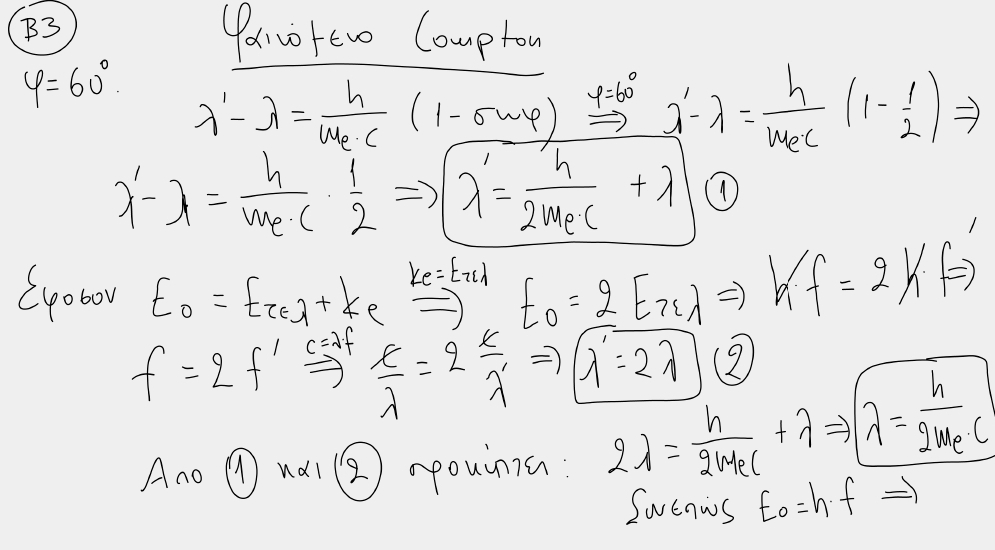 Β3 Φαινόμενο Compton
φ=60°.
λ' - λ = h/(me·c) (1 - συνφ) ⇒(φ=60°) λ' - λ = h/(me·c) (1 - 1/2) ⇒
λ' - λ = h/(me·c) · 1/2 ⇒ λ' = h/(2me·c) + λ ①
Εφοσον E₀ = Eτελ + ke ⇒(ke=Eτελ) E₀ = 2 Eτελ ⇒ h·f = 2 h·f' ⇒
f = 2 f' ⇒(c=λ·f) c/λ = 2 c/λ' ⇒ λ' = 2λ ②
Απο ① και ② προκύπτει: 2λ = h/(2meC) + λ ⇒ λ = h/(2me·C)
Συνεπώς E₀ = h·f ⇒